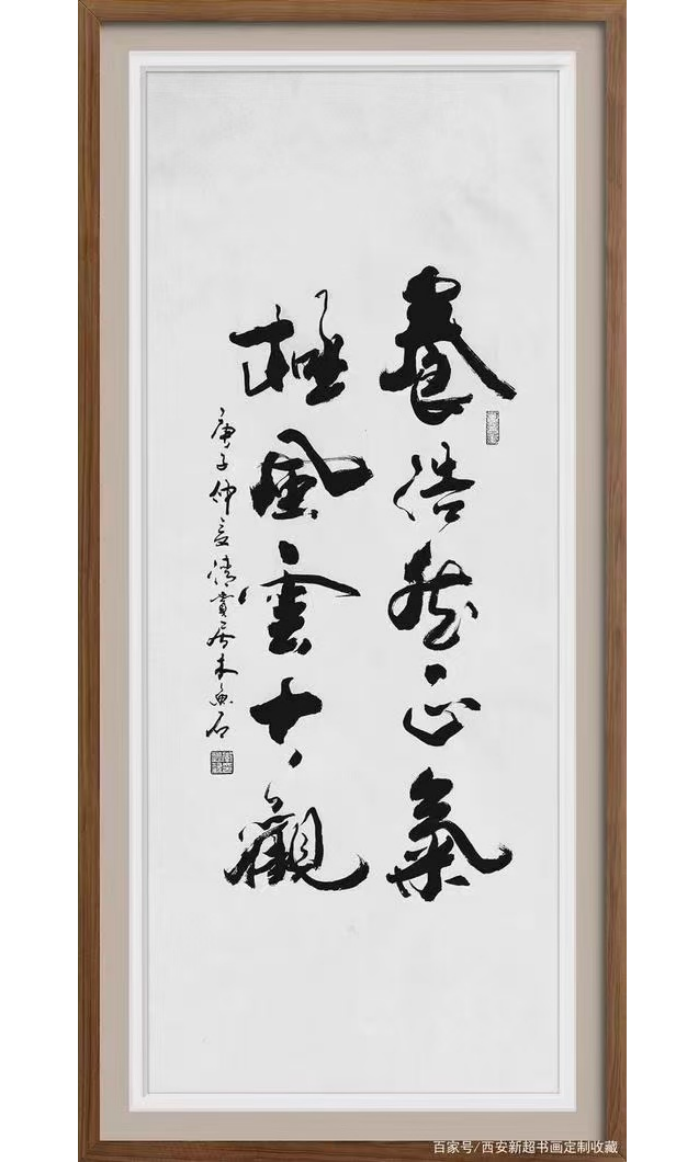 養浩然正氣
極風雲大觀
庚子仲夏清貴居木魚石
百家号/西安新超书画定制收藏